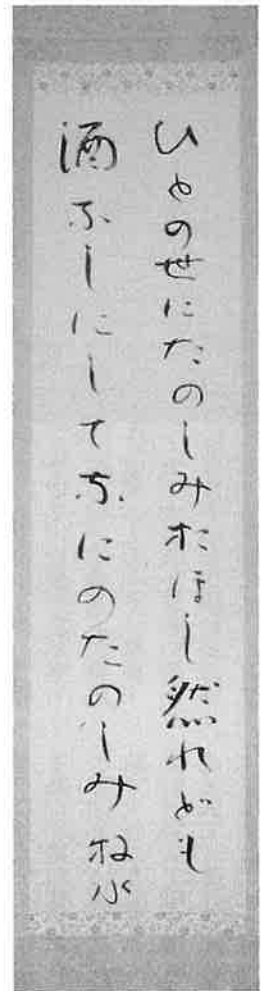 ひとの世にたのしみおほし然れども
酒なしにしてなにのたのしみ 牧水